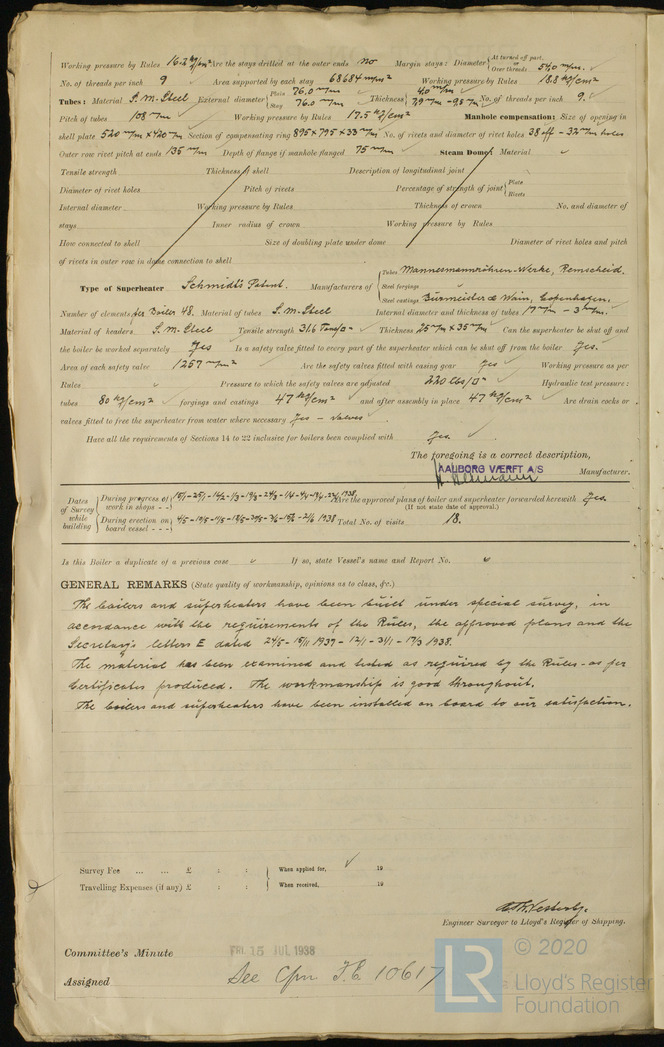 Working pressure by Rules 16.2 kg/cm² Are the stays drilled at the outer ends no Margin stays: Diameter { At turned off part, or Over threads 54.0 m/m.
No. of threads per inch 9 Area supported by each stay 68684 m/m² Working pressure by Rules 18.8 kg/cm²
Tubes: Material S.M. Steel External diameter { Plain 76.0 m/m Stay 76.0 m/m Thickness { 4.0 m/m 7.9 m/m - 9.8 m/m No. of threads per inch 9.
Pitch of tubes 108 m/m Working pressure by Rules 17.5 kg/cm² Manhole compensation: Size of opening in
shell plate 520 m/m x 420 m/m Section of compensating ring 895 x 795 x 33 m/m No. of rivets and diameter of rivet holes 38 off - 32 m/m holes
Outer row rivet pitch at ends 135 m/m Depth of flange if manhole flanged 75 m/m Steam Dome: Material
Tensile strength Thickness of shell Description of longitudinal joint
Diameter of rivet holes Pitch of rivets Percentage of strength of joint { Plate Rivets
Internal diameter Working pressure by Rules Thickness of crown No. and diameter of
stays Inner radius of crown Working pressure by Rules
How connected to shell Size of doubling plate under dome Diameter of rivet holes and pitch
of rivets in outer row in dome connection to shell
Type of Superheater Schmidt's Patent. Manufacturers of { Tubes Mannesmannröhren-Werke, Remscheid.
Steel forgings
Steel castings Burmeister & Wain, Copenhagen.
Number of elements per Boiler 48. Material of tubes S.M. Steel Internal diameter and thickness of tubes 17 m/m - 3 m/m.
Material of headers S.M. Steel Tensile strength 31.6 Tons/□" Thickness 25 m/m x 35 m/m Can the superheater be shut off and
the boiler be worked separately Yes Is a safety valve fitted to every part of the superheater which can be shut off from the boiler Yes.
Area of each safety valve 1257 m/m² Are the safety valves fitted with easing gear Yes Working pressure as per
Rules Pressure to which the safety valves are adjusted 220 lbs/□" Hydraulic test pressure:
tubes 80 kg/cm² forgings and castings 47 kg/cm² and after assembly in place 47 kg/cm² Are drain cocks or
valves fitted to free the superheater from water where necessary Yes - valves
Have all the requirements of Sections 14 to 22 inclusive for boilers been complied with Yes
The foregoing is a correct description,
AALBORG VÆRFT A/S
Manufacturer.
Dates of Survey while building { During progress of work in shops - - Are the approved plans of boiler and superheater forwarded herewith Yes.
(If not state date of approval.)
During erection on board vessel - - - 1938 Total No. of visits 18.
Is this Boiler a duplicate of a previous case If so, state Vessel's name and Report No.
GENERAL REMARKS (State quality of workmanship, opinions as to class, &c.)
The boilers and superheaters have been built under special survey, in
accordance with the requirements of the Rules, the approved plans and the
Secretary's letters E dated 24/5 - 15/11 1937 - 12/1 - 31/1 - 17/3 1938.
The material has been examined and tested as required by the Rules - as per
Certificates produced. The workmanship is good throughout.
The boilers and superheaters have been installed on board to our satisfaction.
Survey Fee ... ... £ : : When applied for, 19
Travelling Expenses (if any) £ : : When received, 19
Engineer Surveyor to Lloyd's Register of Shipping.
Committee's Minute FRI 15 JUL 1938
Assigned See F.E. 10617
LR © 2020
Lloyd's Register
Foundation